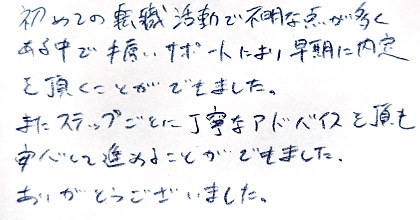 初めての転職活動で不明な点が多く
ある中で手厚いサポートにより早期に内定
を頂くことができました。
またステップごとに丁寧なアドバイスを頂き
安心して進めることができました。
ありがとうございました。